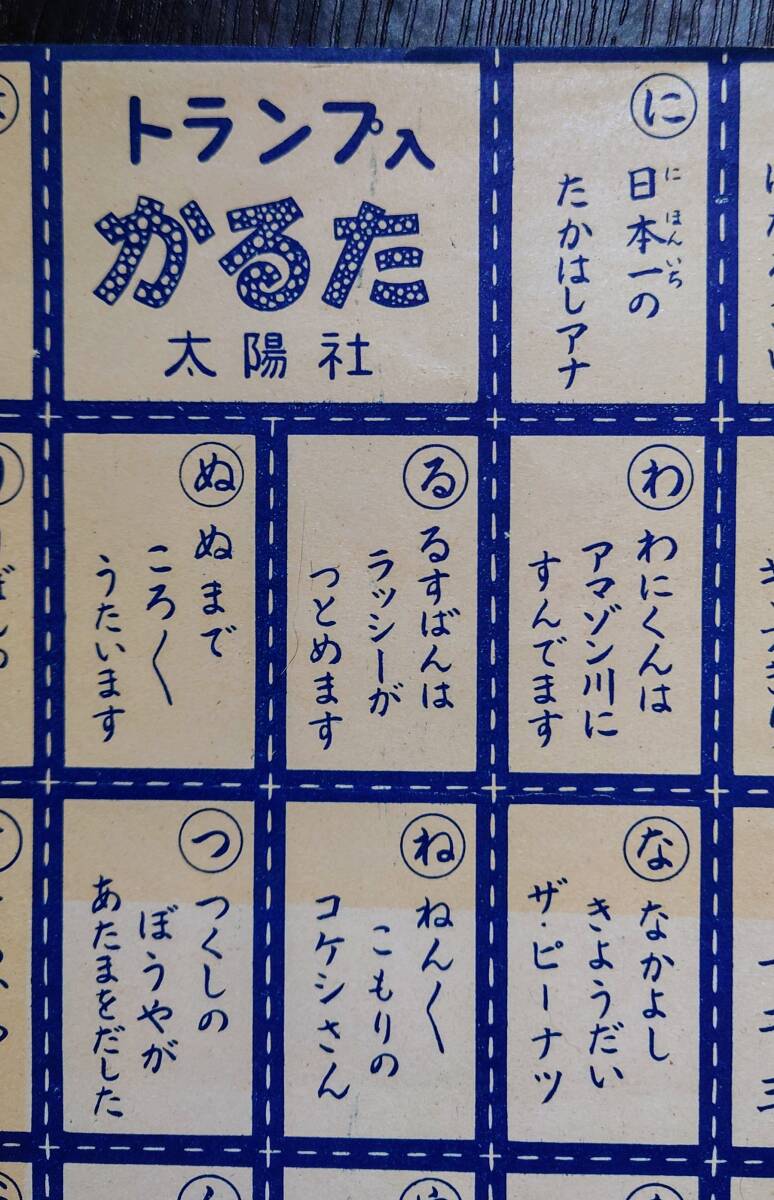 トランプ入
かるた
太陽社
に
日本一の
にほんいち
たかはしアナ
わ
わにくんは
アマゾン川に
すんでます
る
るすばんは
ラッシーが
つとめます
ぬ
ぬまで
ころ〱
うたいます
な
なかよし
きようだい
ザ・ピーナツ
ね
ねん〱
こもりの
コケシさん
つ
つくしの
ぼうやが
あたまをだした
一二三